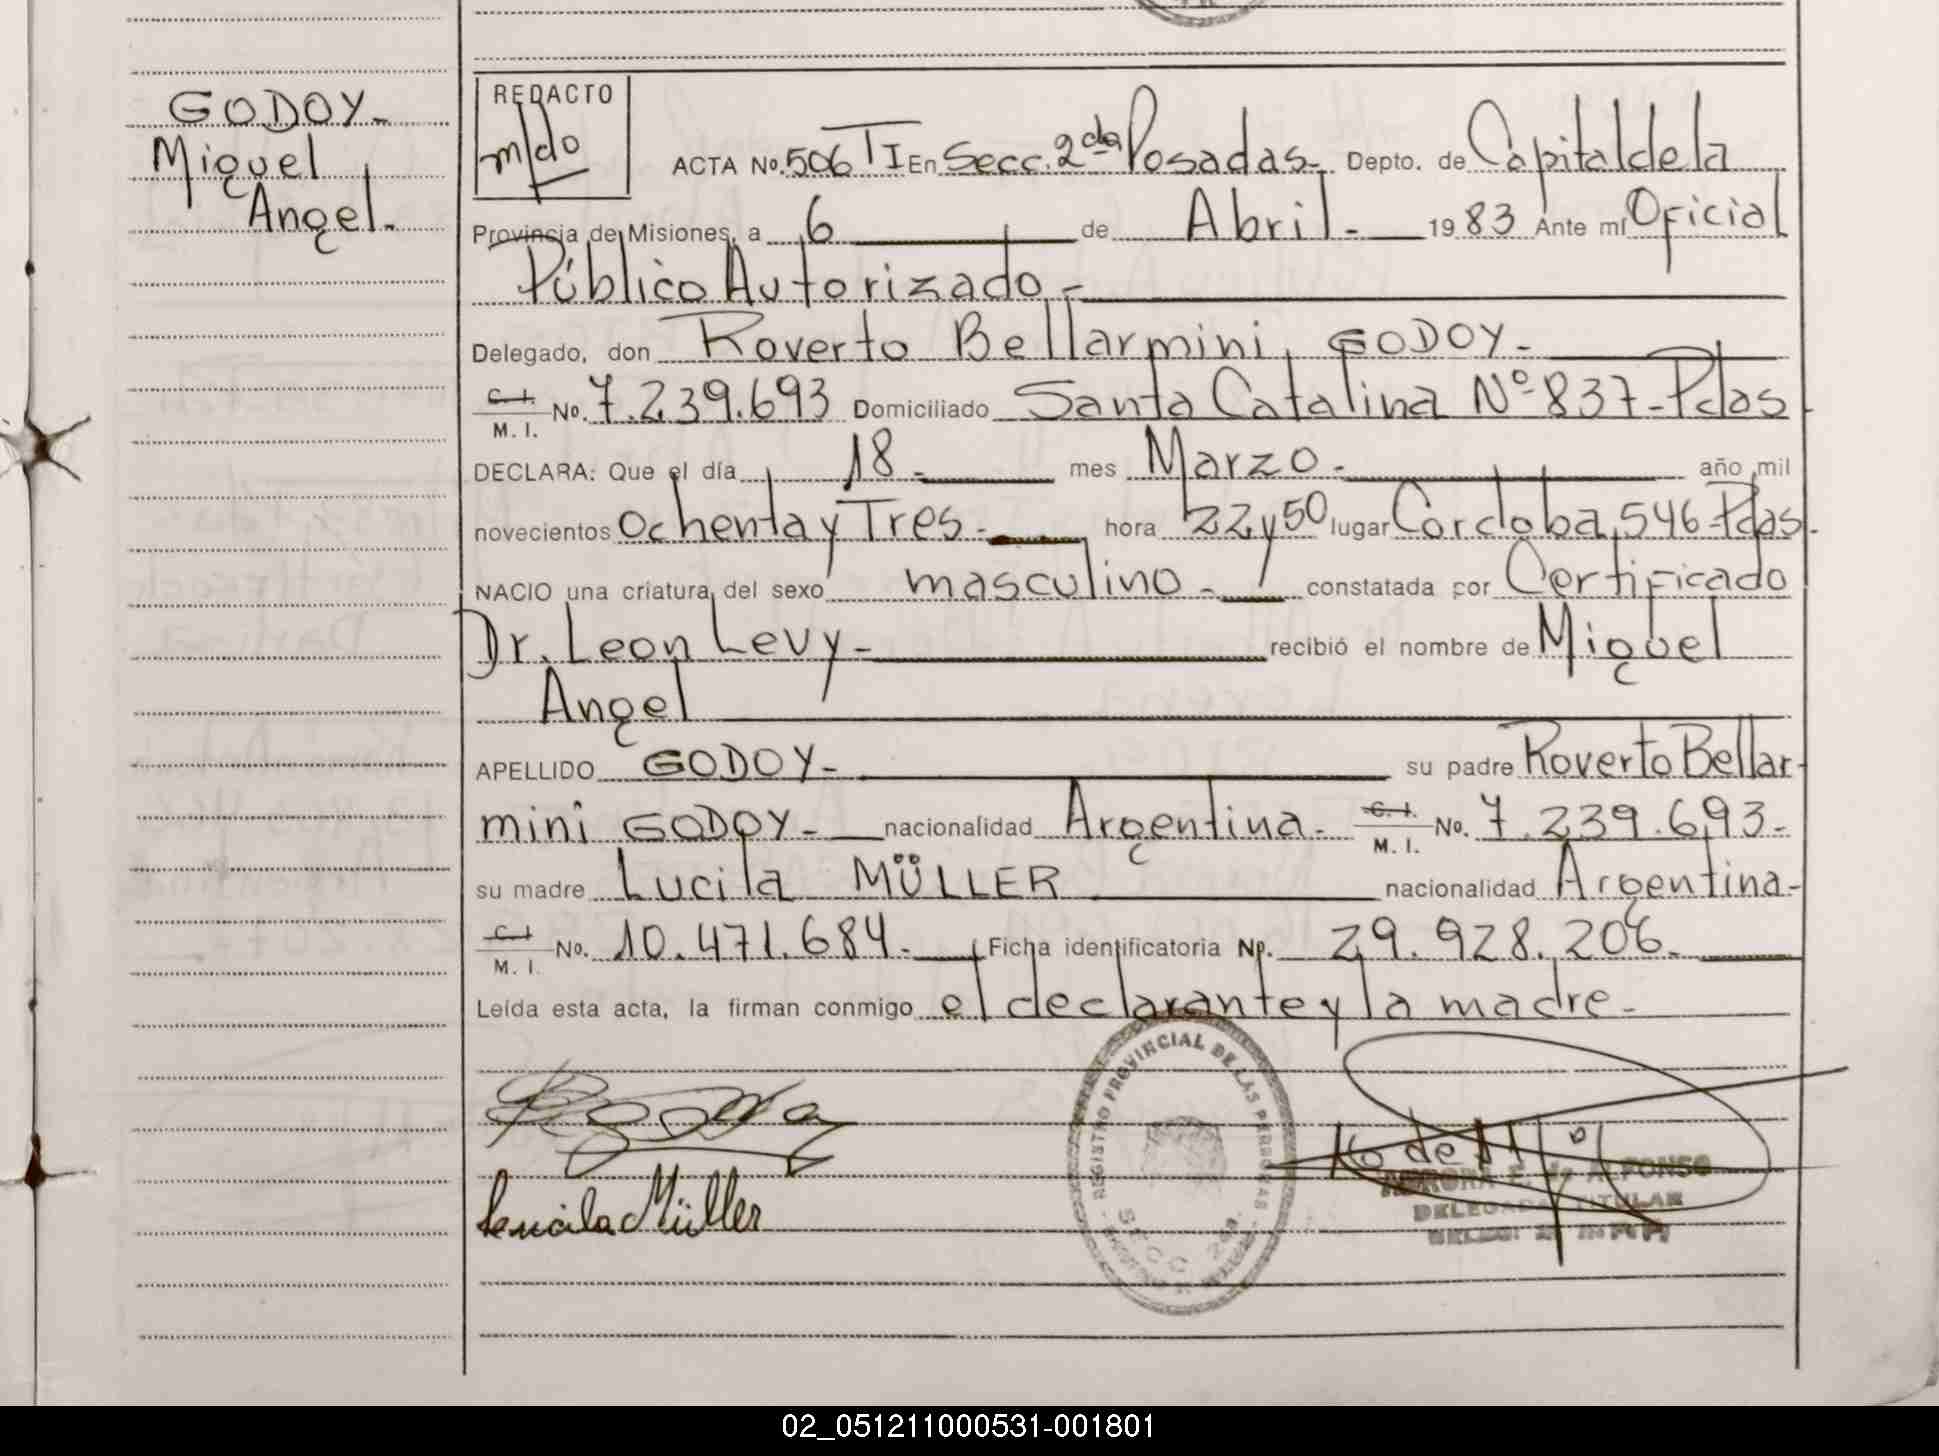 GODOY-
Miguel
Angel.
REDACTO
m/do
ACTA No. 506 TI En Secc. 2da Posadas- Depto. de Capital de la
Provincia de Misiones, a 6 de Abril.- 1983 Ante mí Oficial
Público Autorizado.-
Delegado, don Roverto Bellarmini GODOY-
C. I. M. I. No. 7.239.693 Domiciliado Santa Catalina Nº 837-Pdas
DECLARA: Que el día 18- mes Marzo- año mil
novecientos Ochenta y Tres- hora 22 y 50 lugar Cordoba 546-Pdas.
NACIO una criatura del sexo masculino- constatada por Certificado
Dr. Leon Levy- recibió el nombre de Miguel
Angel
APELLIDO GODOY- su padre Roverto Bellar-
mini GODOY- nacionalidad Argentina- C. I. M. I. No. 7.239.693-
su madre Lucila MÜLLER nacionalidad Argentina-
C. I. M. I. No. 10.471.684- Ficha identificatoria Nº. 29.928.206-
Leída esta acta, la firman conmigo el declarante y la madre-
Lucila Müller
REGISTRO PROVINCIAL DE LAS PERSONAS
SECC 2da.
AURORA E. de ALFONSO
DELEGADA TITULAR
02_051211000531-001801